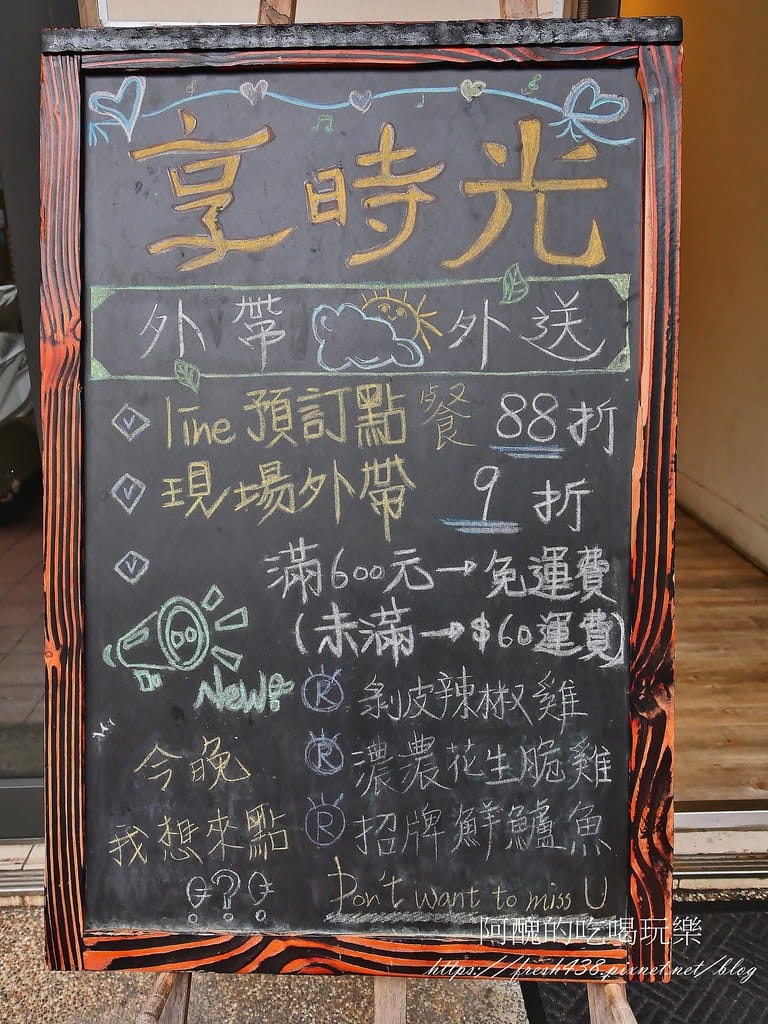 享時光
外帶 外送
line 預訂點餐 88折
現場外帶 9折
滿600元→免運費
(未滿→$60運費)
New!
R 剝皮辣椒雞
R 濃濃花生脆雞
R 招牌鮮鱸魚
今晚
我想來點
?
Don't want to miss U
阿醜的吃喝玩樂
https://fresh438.pixnet.net/blog